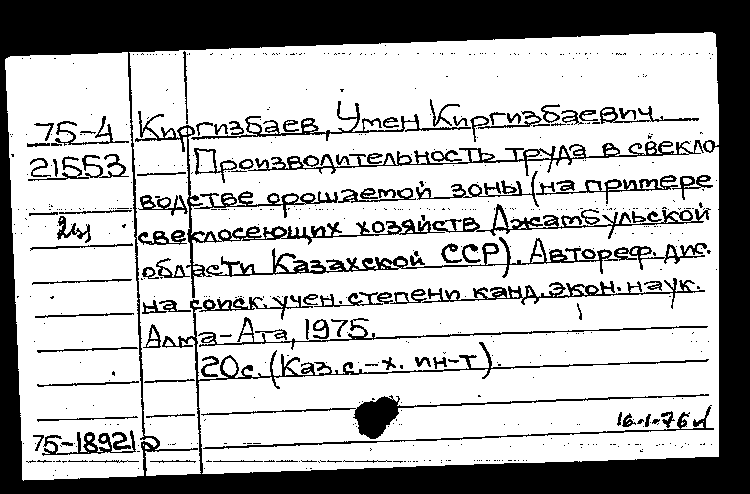 75-4 Киргизбаев, Умен Киргизбаевич.
21553 Производительность труда в свекло-
водстве орошаемой зоны (на примере
свеклосеющих хозяйств Джамбульской
области Казахской ССР). Автореф. дис.
на соиск. учен. степени канд. экон. наук.
Алма-Ата, 1975.
20с. (Каз. с.-х. ин-т).
16-1-76
75-18921